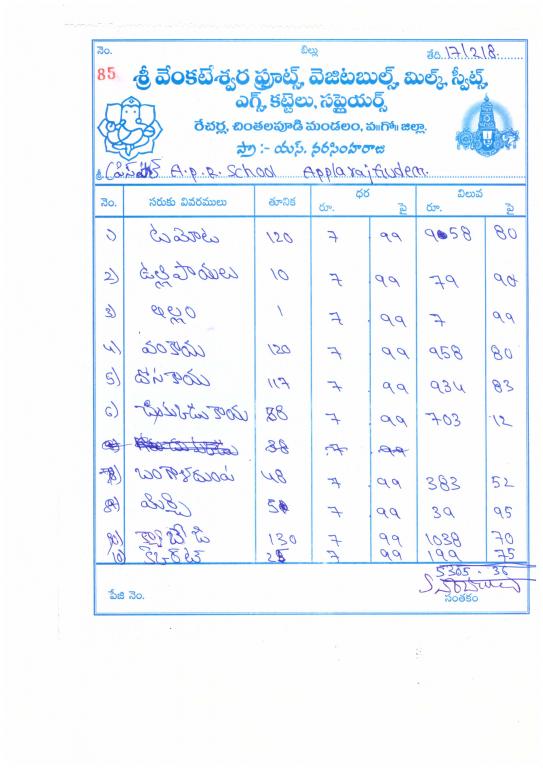 నెం. బిల్లు తేది. 17/2/18.
85 శ్రీ వేంకటేశ్వర ఫ్రూట్స్, వెజిటబుల్స్, మిల్క్, స్వీట్స్,
ఎగ్స్, కట్టెలు, సప్లైయర్స్
రేచర్ల, చింతలపూడి మండలం, ప॥గో॥ జిల్లా.
ప్రొ :- యస్. నరసింహరాజు
శ్రీ ప్రిన్సిపాల్ A.p.R. School Applarajgudem.
నెం. సరుకు వివరములు తూనిక ధర విలువ
రూ. పై రూ. పై
1) టమోట 120 7 99 958 80
2) ఉల్లిపాయలు 10 7 99 79 90
3) అల్లం 1 7 99 7 99
4) వంకాయ 120 7 99 958 80
5) దోసకాయ 117 7 99 934 83
6) చిక్కుడుకాయ 88 7 99 703 12
38 7 99
7) బంగాళదుంప 48 7 99 383 52
8) మిర్చి 5 7 99 39 95
9) క్యాబేజి 130 7 99 1038 70
10) క్యారెట్ 25 7 99 199 75
5305 - 36
పేజి నెం. సంతకం